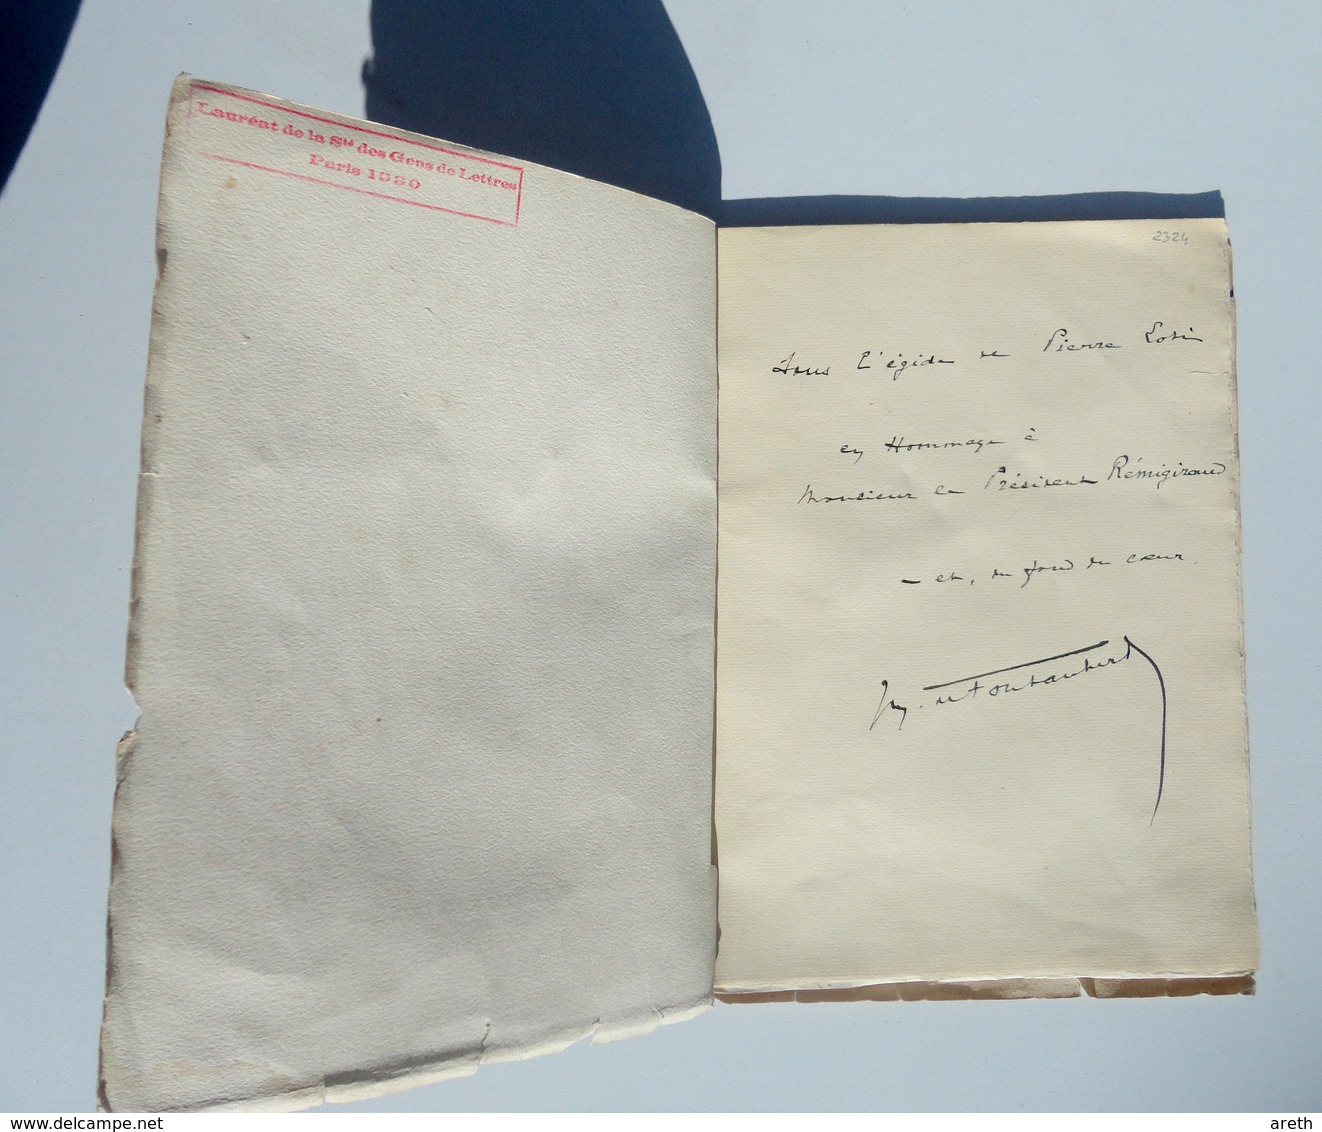 Lauréat de la Sté des Gens de Lettres
Paris 1930
2324
Sous l'égide de Pierre Loti
en Hommage à
Monsieur le Président Rémigiraud
– et, du fond du cœur.
www.delcampe.net
areth